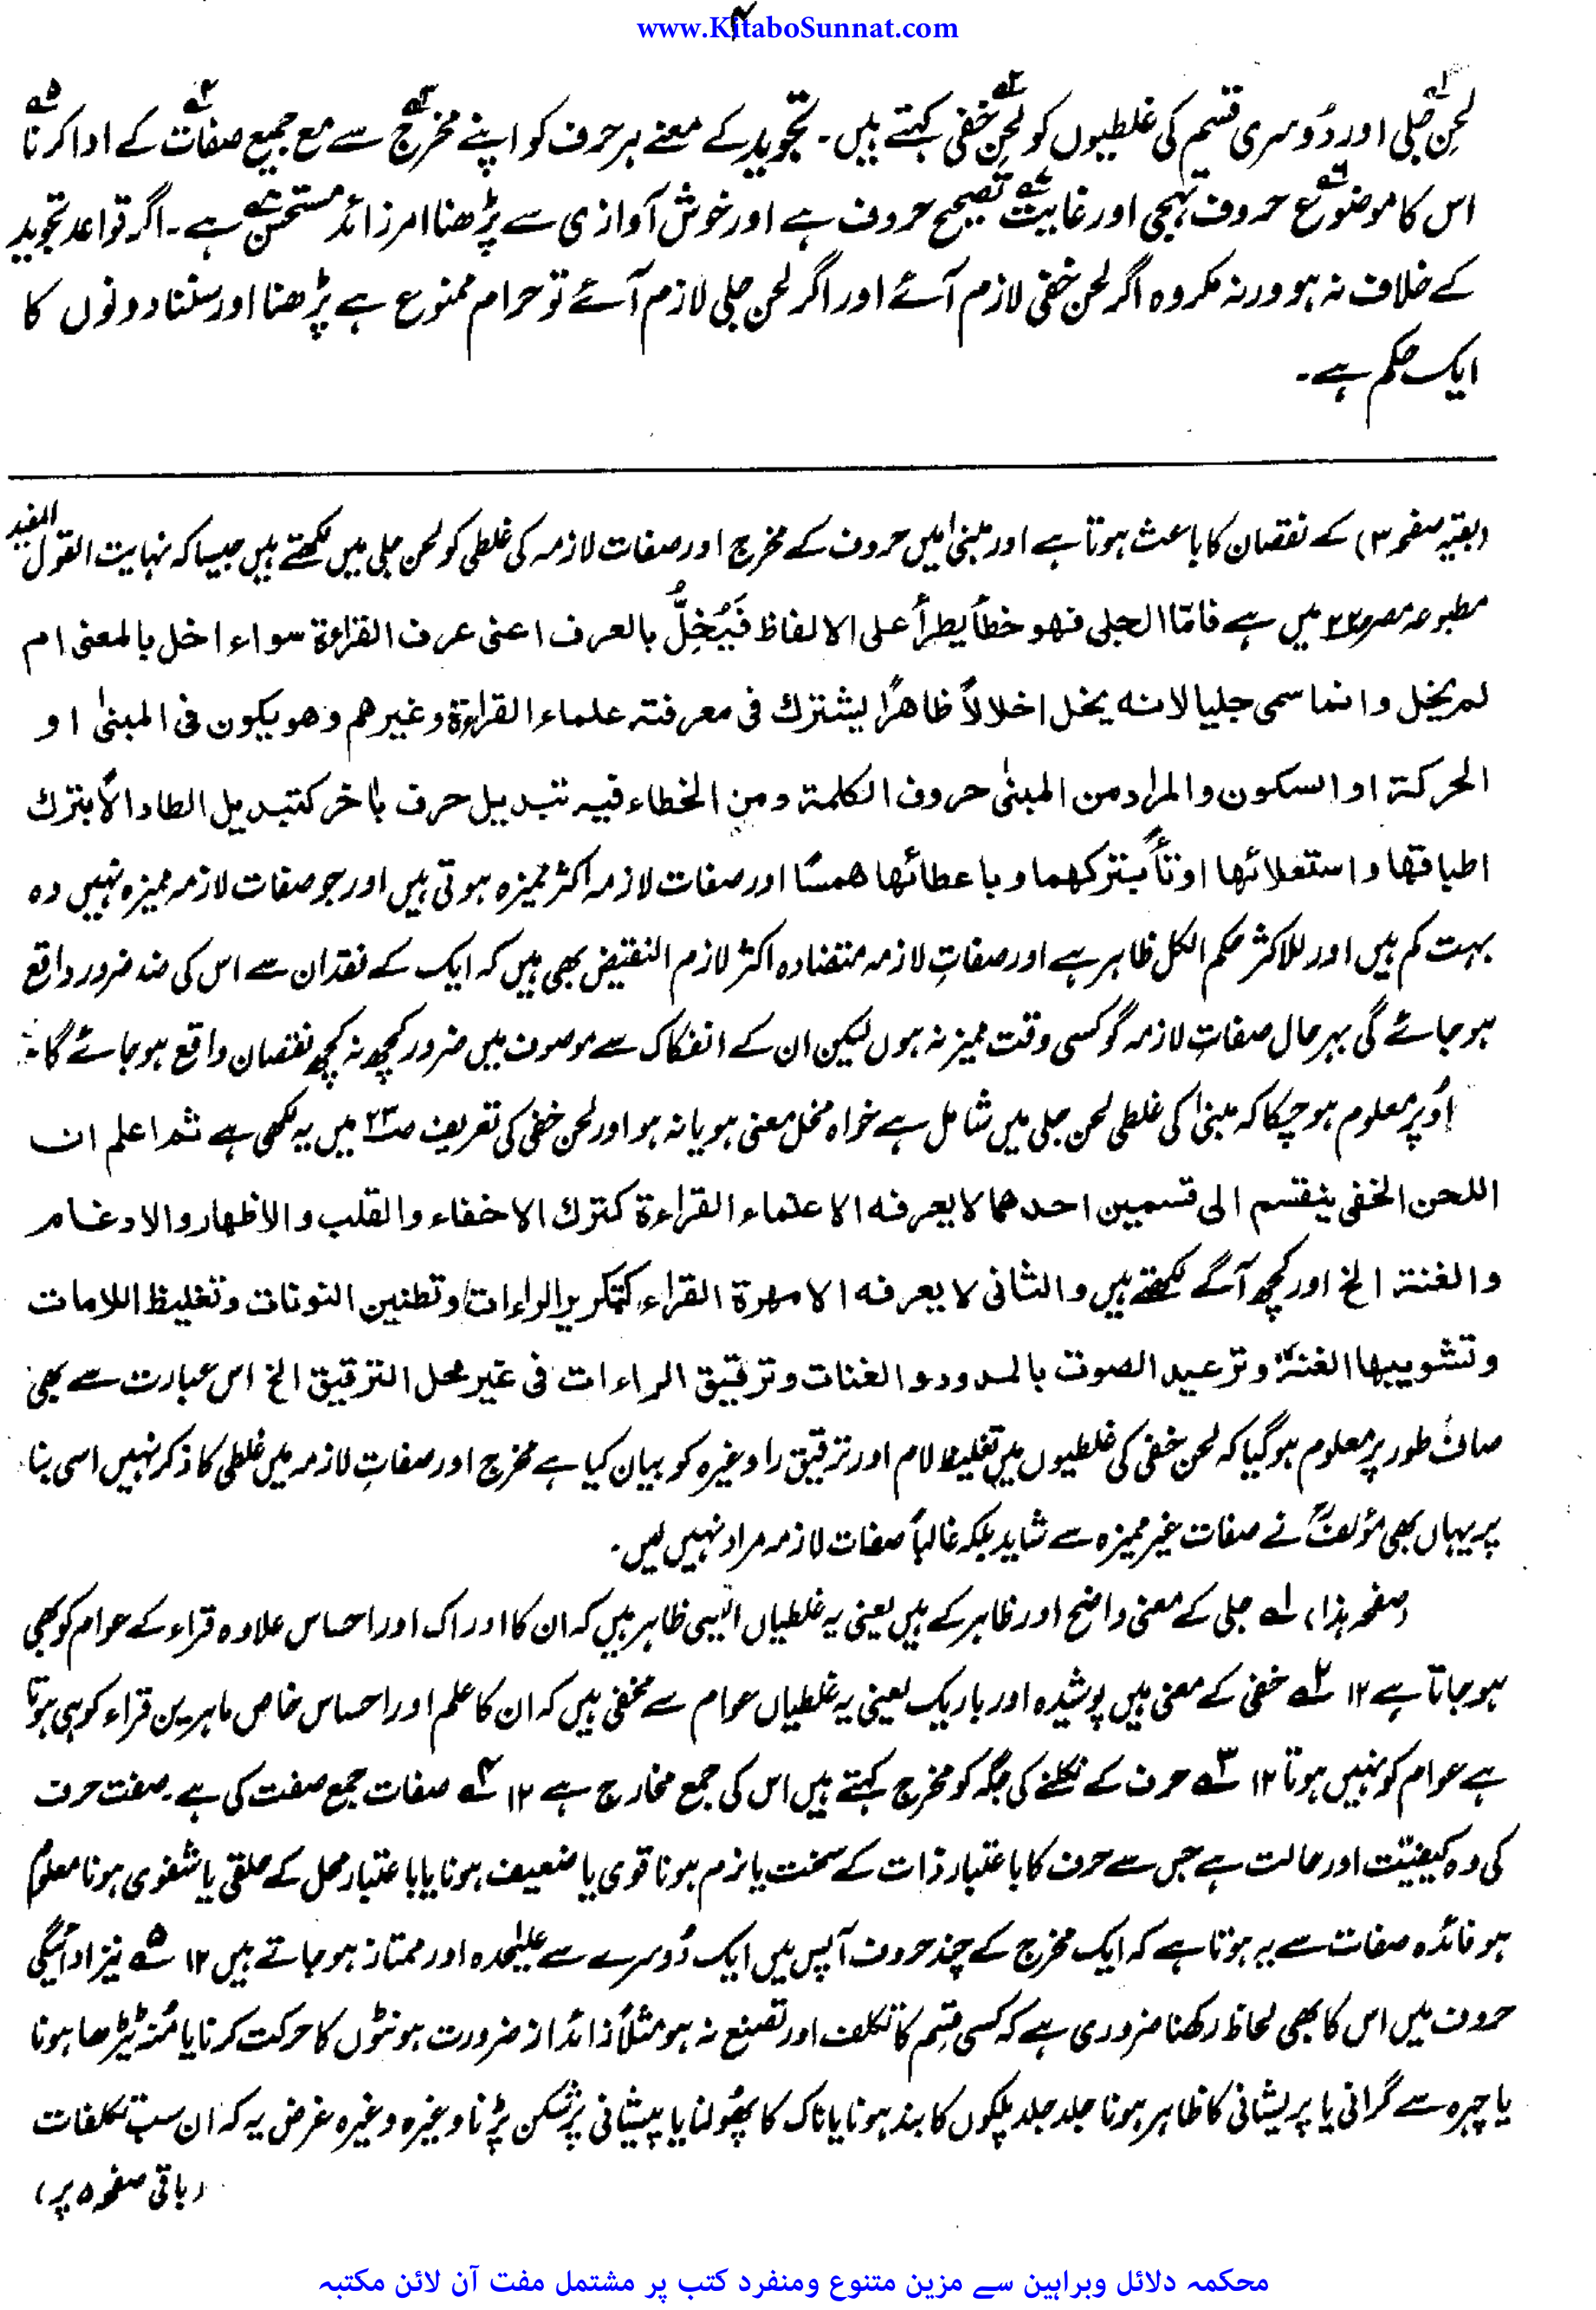 www.KitaboSunnat.com
۴
لحنِ جلی اور دُوسری قسم کی غلطیوں کو لحنِ خفی کہتے ہیں۔ تجوید کے معنے ہر حرف کو اپنے مخرج سے مع جمیع صفات کے ادا کرنا
اس کا موضوع حروف تہجی اور غایت تصحیح حروف ہے اور خوش آوازی سے پڑھنا امر زائد مستحسن ہے۔ اگر قواعد تجوید
کے خلاف نہ ہو ورنہ مکروہ اگر لحن خفی لازم آئے اور اگر لحن جلی لازم آئے تو حرام ممنوع ہے پڑھنا اور سننا دونوں کا
ایک حکم ہے۔
(بقیہ صفحہ ۳) کے نقصان کا باعث ہوتا ہے اور مبنیٰ میں حروف کے مخرج اور صفات لازمہ کی غلطی کو لحن جلی میں لکھتے ہیں جیسا کہ نہایت القول المفید
مطبوعہ مصر ص۲۲ میں ہے فامّا الجلی فهو خطأ یطرأ علی الالفاظ فَیُخِلُّ بالعرف اعنی عرف القراءۃ سواء اخل بالمعنی ام
لم یخل وانما سمی جلیا لانه یخل اخلالاً ظاهرًا یشترك فی معرفته علماء القراءۃ وغیرهم وهو یکون فی المبنیٰ او
الحرکة او السکون والمراد من المبنیٰ حروف الکلمة ومن الخطاء فیه تبدیل حرف باٰخر کتبدیل الطاء دالاً بترك
اطباقها واستعلائها او تاءً بترکهما وباعطائها همسًا اور صفات لازمہ اکثر ممیزہ ہوتی ہیں اور جو صفات لازمہ ممیزہ نہیں وہ
بہت کم ہیں اور للاکثر حکم الکل ظاہر ہے اور صفاتِ لازمہ متضادہ اکثر لازم النقیض بھی ہیں کہ ایک کے فقدان سے اس کی ضد ضرور واقع
ہو جائے گی بہرحال صفاتِ لازمہ گو کسی وقت ممیز نہ ہوں لیکن ان کے انفکاک سے موصوف میں ضرور کچھ نہ کچھ نقصان واقع ہو جائے گا۔
اُوپر معلوم ہو چکا کہ مبنیٰ کی غلطی لحن جلی میں شامل ہے خواہ مخل معنی ہو یا نہ ہو اور لحن خفی کی تعریف ص۲۳ میں یہ لکھی ہے ثم اعلم ان
اللحن الخفی ینقسم الی قسمین احدهما لا یعرفه الا علماء القراءۃ کترك الاخفاء والقلب والاظهار والادغام
والغنة الخ اور کچھ آگے لکھتے ہیں والثانی لا یعرفه الا مهرۃ القراء کتکریر الراءات وتطنین النونات وتغلیظ اللامات
وتشویبها الغنة وترعید الصوت بالمدود والغنات وترقیق الراءات فی غیر محل الترقیق الخ اس عبارت سے بھی
صاف طور پر معلوم ہو گیا کہ لحن خفی کی غلطیوں میں تغلیظ لام اور ترقیق را وغیرہ کو بیان کیا ہے مخرج اور صفاتِ لازمہ میں غلطی کا ذکر نہیں اسی بنا
پر یہاں بھی مؤلفؒ نے صفات غیر ممیزہ سے شاید بلکہ غالباً صفات لازمہ مراد نہیں لیں۔
(صفحہ ہذا) ۱؎ جلی کے معنی واضح اور ظاہر کے ہیں یعنی یہ غلطیاں ایسی ظاہر ہیں کہ ان کا ادراک اور احساس علاوہ قراء کے عوام کو بھی
ہو جاتا ہے ۱۲ ۲؎ خفی کے معنی ہیں پوشیدہ اور باریک یعنی یہ غلطیاں عوام سے مخفی ہیں کہ ان کا علم اور احساس خاص ماہرین قراء کو ہی ہوتا
ہے عوام کو نہیں ہوتا ۱۲ ۳؎ حرف کے نکلنے کی جگہ کو مخرج کہتے ہیں اس کی جمع مخارج ہے ۱۲ ۴؎ صفات جمع صفت کی ہے۔ صفت حرف
کی وہ کیفیّت اور حالت ہے جس سے حرف کا باعتبار ذات کے سخت یا نرم ہونا قوی یا ضعیف ہونا یا باعتبار محل کے حلقی یا شفوی ہونا معلوم
ہو فائدہ صفات سے یہ ہوتا ہے کہ ایک مخرج کے چند حروف آپس میں ایک دُوسرے سے علیٰحدہ اور ممتاز ہو جاتے ہیں ۱۲ ۵؎ نیز ادائیگی
حروف میں اس کا بھی لحاظ رکھنا ضروری ہے کہ کسی قسم کا تکلف اور تصنع نہ ہو مثلاً زائد از ضرورت ہونٹوں کا حرکت کرنا یا مُنہ ٹیڑھا ہونا
یا چہرہ سے گرانی یا پریشانی کا ظاہر ہونا جلد جلد پلکوں کا بند ہونا یا ناک کا پھُولنا یا پیشانی پر شکن پڑنا وغیرہ وغیرہ غرض یہ کہ ان سب تکلفات
(باقی صفحہ ۵ پر)
محکمہ دلائل وبراہین سے مزین متنوع ومنفرد کتب پر مشتمل مفت آن لائن مکتبہ